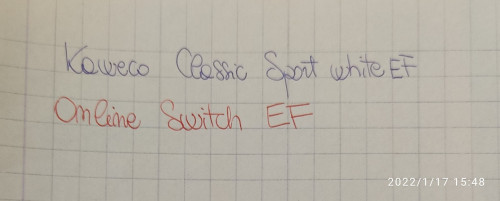 Kaweco Classic Sport white EF
Online Switch EF
2022/1/17 15:48